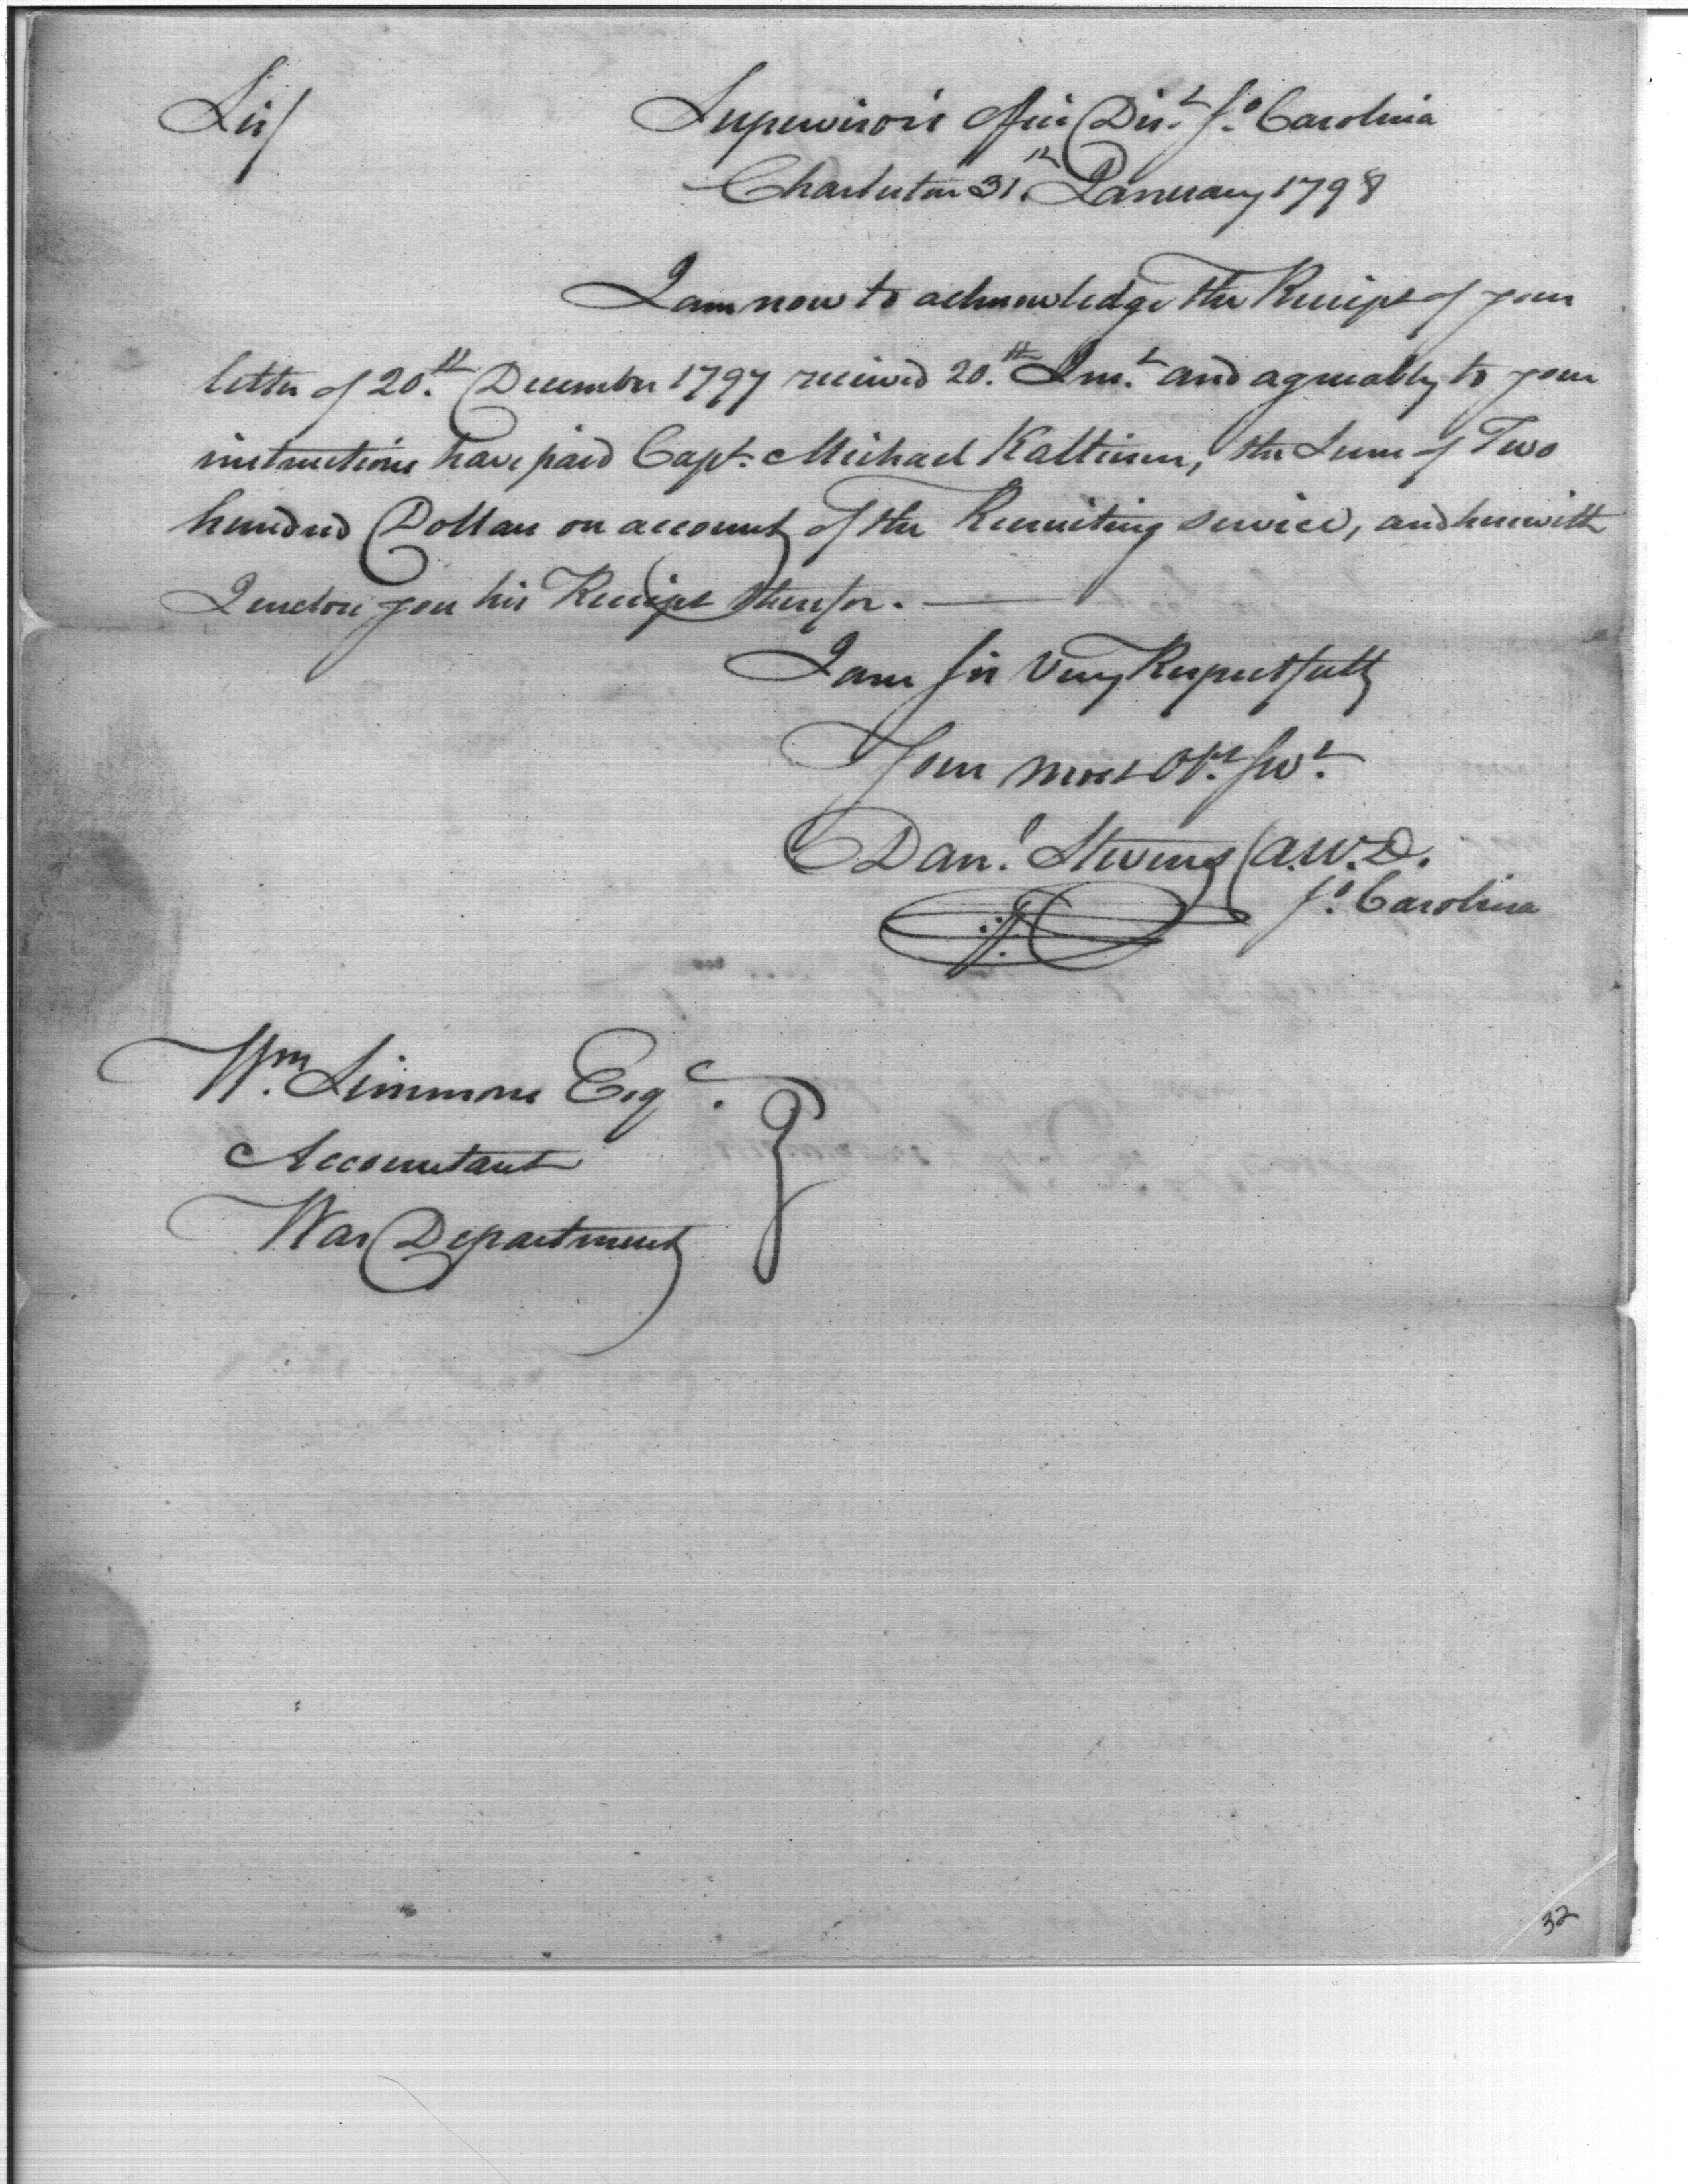 Sir/
Supervisor's Office Dist. So. Carolina
Charleston 31.st January 1798
I am now to acknowledge the Receipt of your
letter of 20.th December 1797 received 20.th Inst. and agreeably to your
instructions have paid Capt. Michael Kalteisen, the Sum of Two
hundred Dollars on account of the Recruiting service, and herewith
I enclose you his Receipt therefor. —
I am Sir Very Respectfully
Your most Obt. Servt.
Danl. Stevens A.W.D.
So. Carolina
Wm. Simmons Esqr.
Accountant
War Department
32